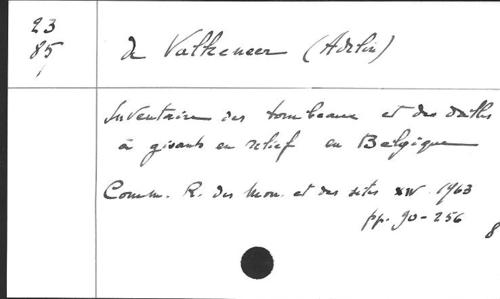 23
85
de Valkeneer (Adelin)
Inventaire des tombeaux et des dalles
à gisants en relief en Belgique
Comm. R. des Mon. et des sites XIV 1963
pp. 90-256
8